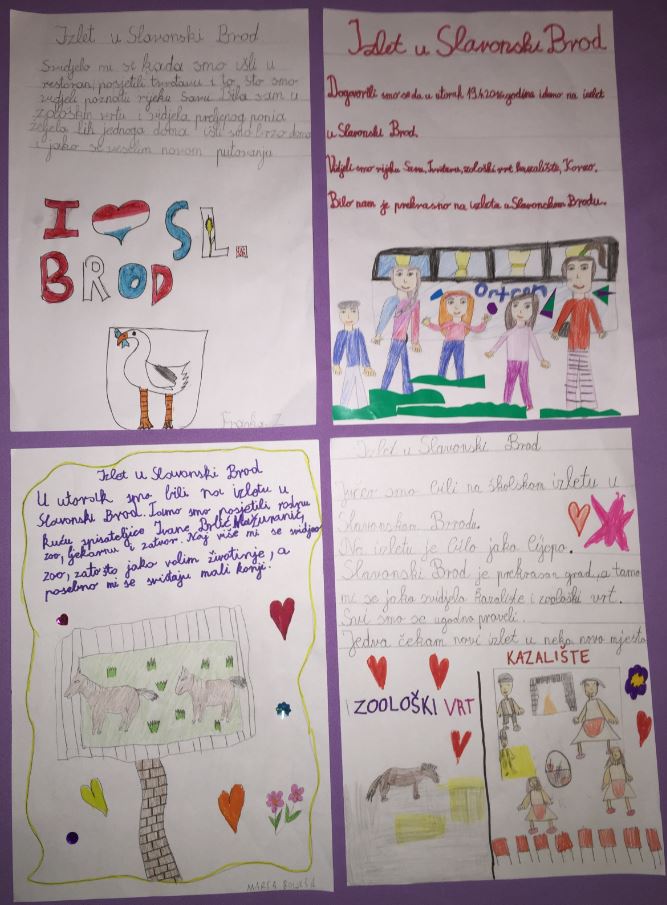 Izlet u Slavonski Brod
Svidjelo mi se kada smo išli u
restoran, posjetili tvrđavu i to, što smo
vidjeli poznatu rijeku Savu. Bila sam u
zološkom vrtu i vidjela prelijepog ponia
željela bih jednoga doma! išli smo brzo doma
i jako se veselim novom putovanju
I SL.
BROD
Izlet u Slavonski Brod
Dogovorili smo se da u utorak 19.4.2016. godine idemo na izlet
u Slavonski Brod.
Vidjeli smo rijeku Savu, Tvrđavu, zološki vrt kazalište, Korzo.
Bilo nam je prekrasno na izletu u Slavonskom Brodu.
Izlet u Slavonski Brod
U utorak smo bili na izletu u
Slavonski Brod. Tamo smo posjetili rodnu
kuću spisateljice Ivane Brlić Mažuranić,
zoo, ljekarnu i zatvor. Naj više mi se svidio
zoo, zato što jako volim životinje, a
posebno mi se sviđaju mali konji.
Izlet u Slavonski Brod
Jučer smo bili na školskom izletu u
Slavonskom Brodu.
Na izletu je bilo jako lijepo.
Slavonski Brod je prekrasan grad, a tamo
mi se jako svidjelo kazalište i zoološki vrt.
Svi smo se ugodno proveli.
Jedva čekam novi izlet u neko novo mjesto
ZOOLOŠKI VRT
KAZALIŠTE